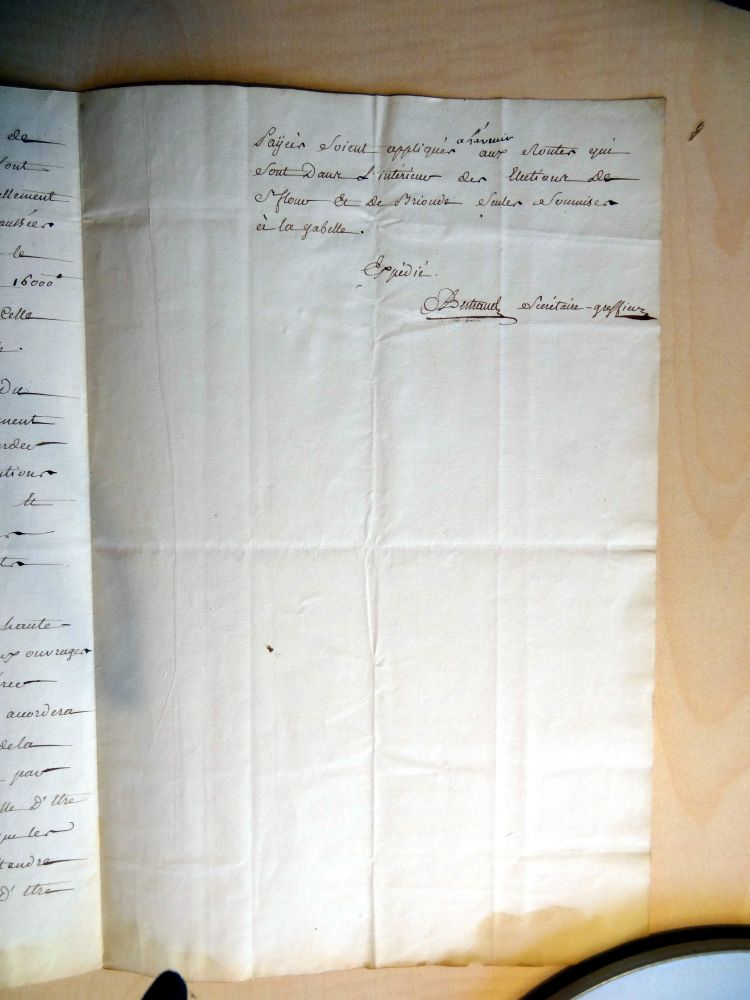 de
sont
ellement
le
16000#
celle
Du
ment
Et
haute-
ux ouvrages
accordera
dela
par
lle d'Etre
que les
tendre
D'Etre
payés soient appliqués à l'avenir aux Routes qui
sont Dans L'intérieur des Elections De
St flour Et De Brioude seules soumises
à la gabelle.
Expédié.
Bertrand secrétaire-greffier